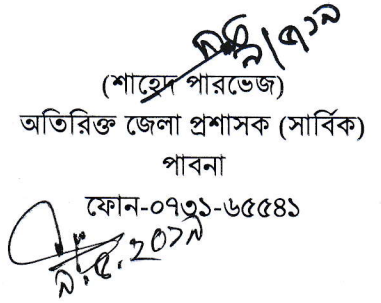 (শাহেদ পারভেজ)
অতিরিক্ত জেলা প্রশাসক (সার্বিক)
পাবনা
ফোন-০৭৩১-৬৫৫৪১
৯.৫.২০১৯